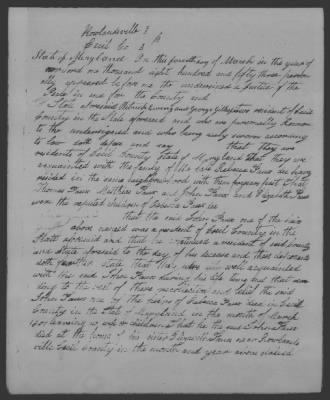 Rowlandsville
Cecil Co
State of Maryland On this fourth day of March in the year of
our Lord one thousand eight hundred and fifty three person
ally appeared before me the undersigned a Justice of the
Peace in and for the County and
State aforesaid Patrick Ewing and George Gillespie residents of Cecil
County in the State aforesaid and who are personally known
to the undersigned and who being duly sworn according
to law doth depose and say that they are
residents of Cecil County State of Maryland that they are
acquainted with the family of the late Rebecca and have
resided in the same neighbourhood with them for many years that
Thomas Matthew and John and Elizabeth
were the reputed children of Rebecca
that the said John one of the heirs
above named was a resident of Cecil County in the
State aforesaid and that he continued a resident of said County
and State aforesaid to the day of his decease and these deponents
doth further state that they were well acquainted
with the said John during his life long but that accor
ding to the best of their recollection and belief the said
John one of the heirs of Rebecca died in Cecil
County in the State of Maryland in the month of March
leaving no wife or children that he the said John
died at the home of his sister Elizabeth near Rowlands
ville Cecil County in the month and year above stated